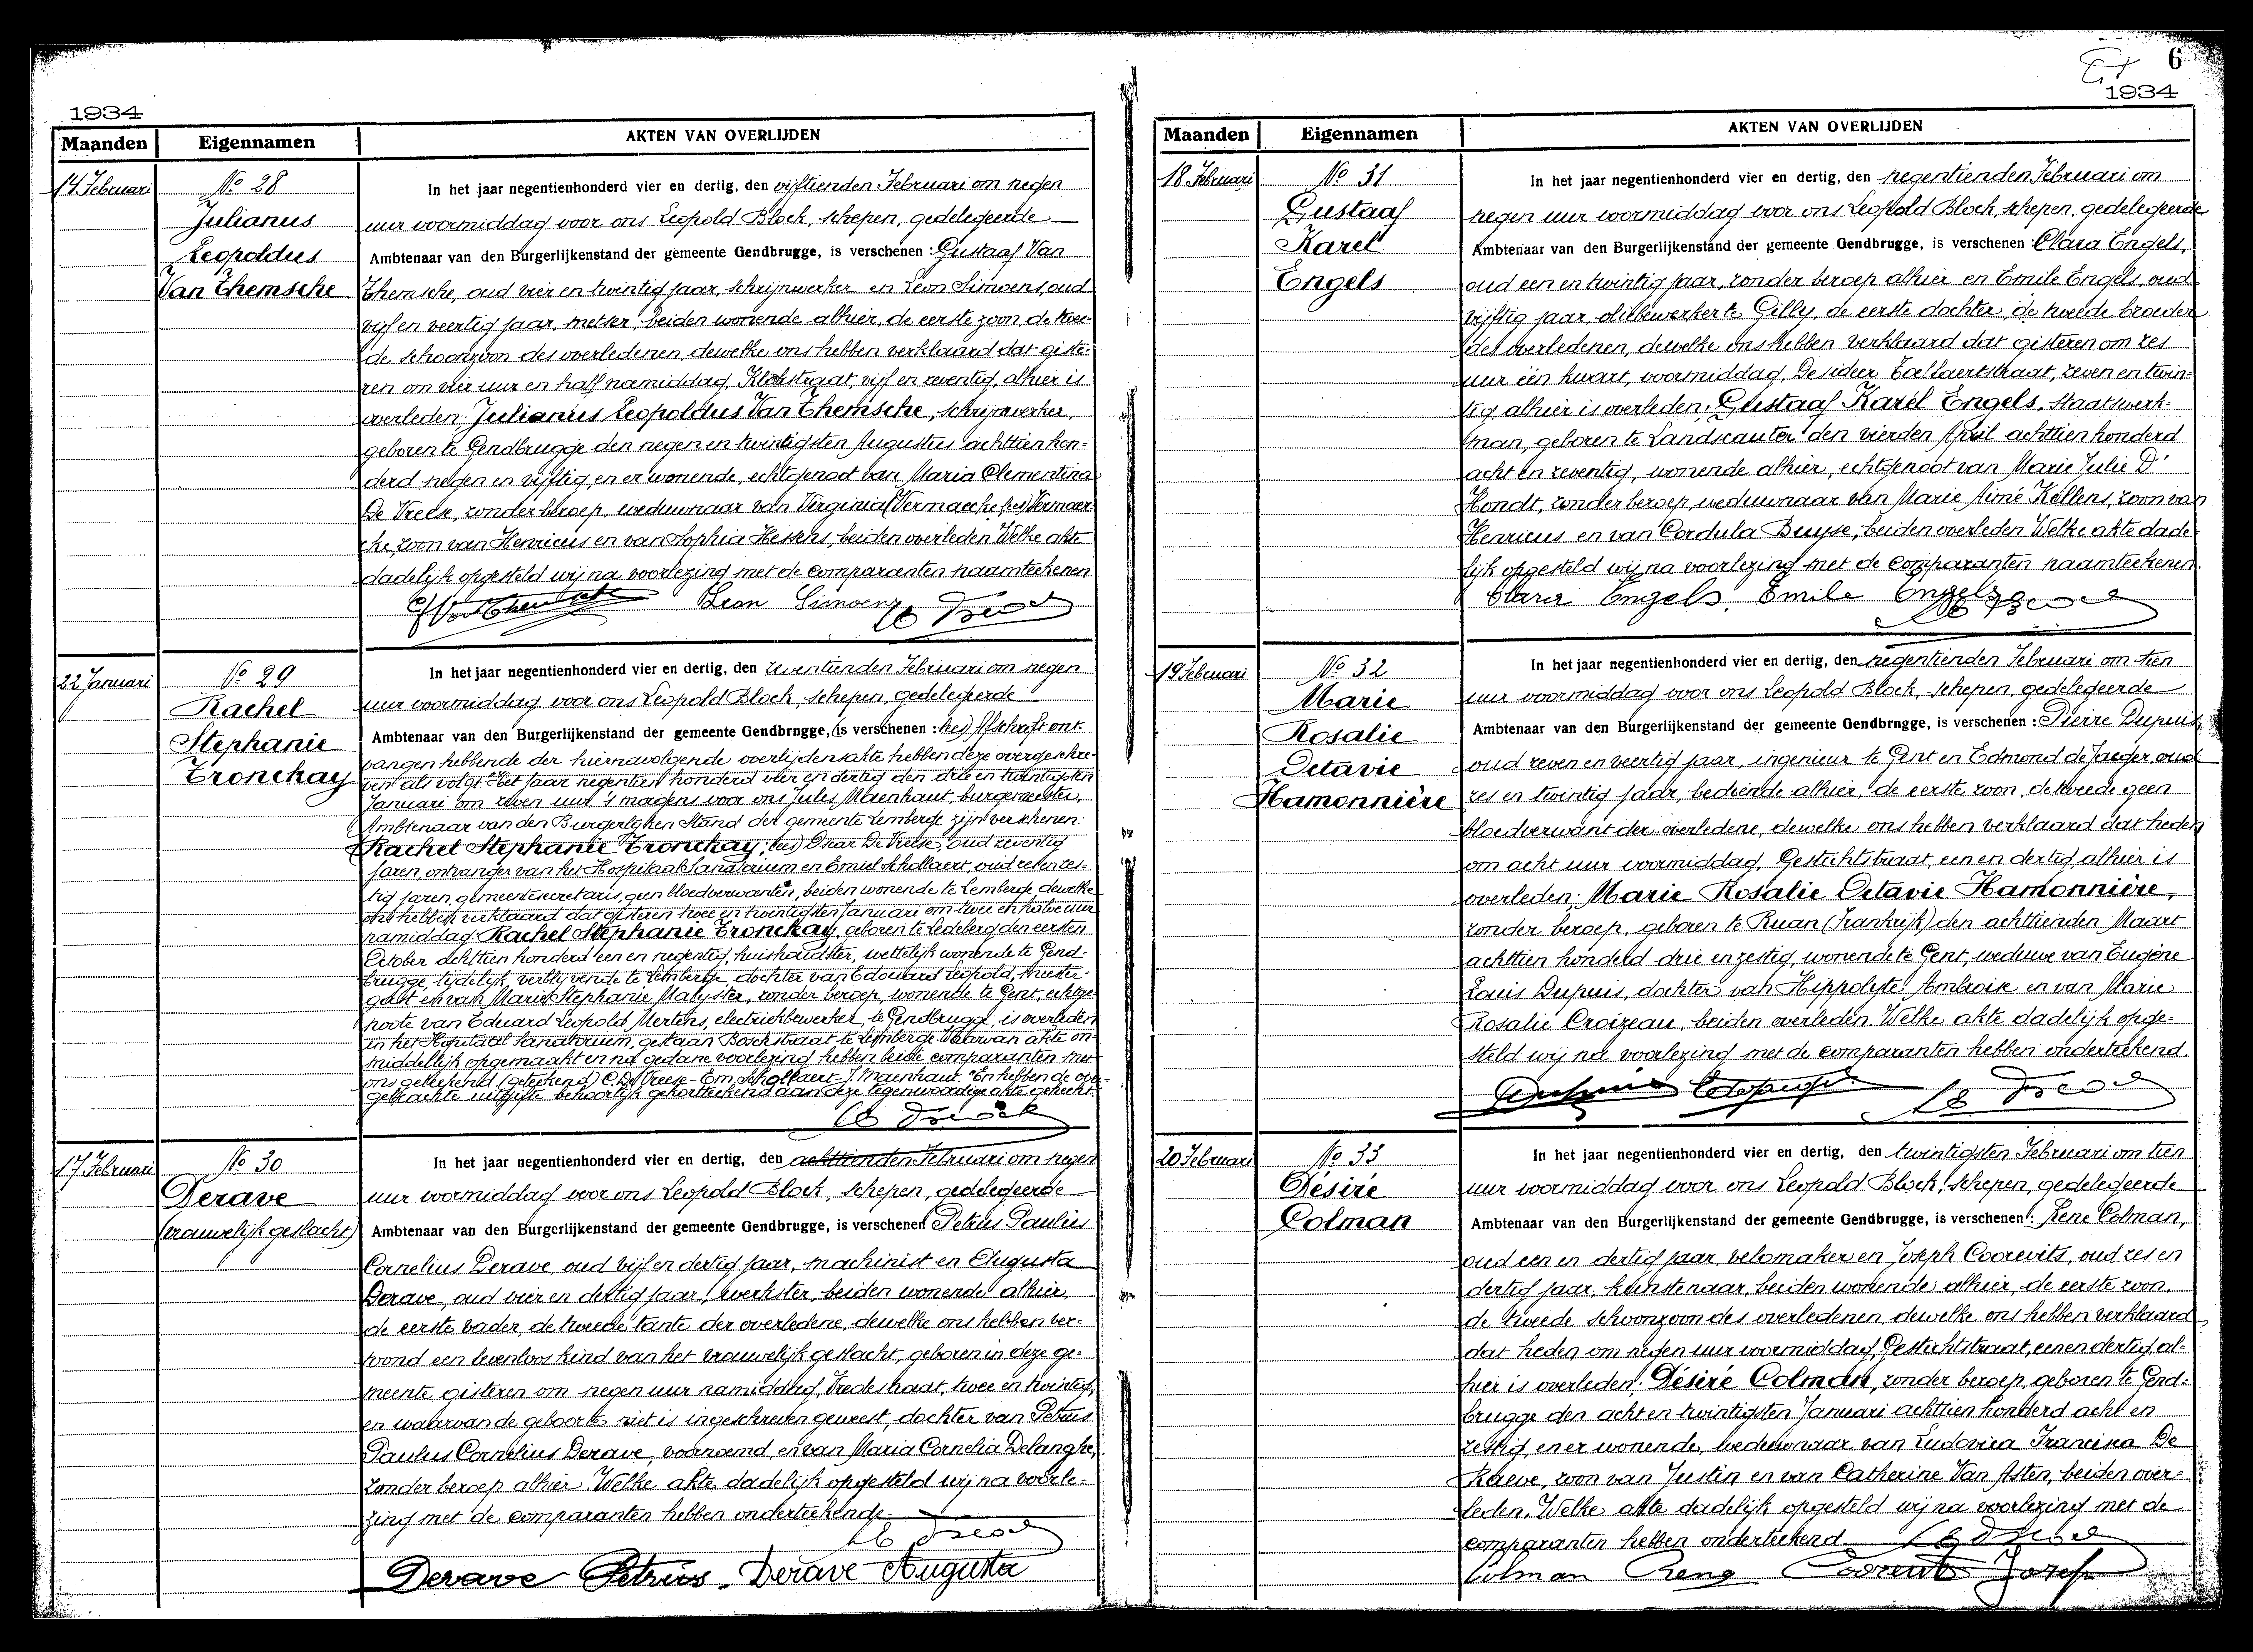 1934
Maanden Eigennamen AKTEN VAN OVERLIJDEN
14 Februari
No 28
Julianus
Leopoldus
Van Themsche
In het jaar negentienhonderd vier en dertig, den vijftienden Februari om negen
uur voormiddag voor ons Leopold Block, schepen, gedelegeerde
Ambtenaar van den Burgerlijkenstand der gemeente Gendbrugge, is verschenen : Gustaaf Van
Themsche, oud vier en twintig jaar, schrijnwerker en Leon Simoens, oud
vijf en veertig jaar, metser, beiden wonende alhier, de eerste zoon, de twee-
de schoonzoon des overledenen, dewelke ons hebben verklaard dat giste-
ren om vier uur en half namiddag, Klokstraat, vijf en zeventig, alhier is
overleden: Julianus Leopoldus Van Themsche, schrijnwerker,
geboren te Gendbrugge den negen en twintigsten Augustus achttien hon-
derd negen en vijftig, en er wonende, echtgenoot van Maria Clementina
De Vreese, zonder beroep, weduwnaar van Virginia (Vermaecke lees) Vermaer-
cke, zoon van Henricus en van Sophia Heskens, beiden overleden. Welke akte
dadelijk opgesteld wij na voorlezing met de comparanten naamteekenen
Leon Simoens
22 Januari
No 29
Rachel
Stephanie
Tronckay
In het jaar negentienhonderd vier en dertig, den zeventienden Februari om negen
uur voormiddag voor ons Leopold Block, schepen, gedelegeerde
Ambtenaar van den Burgerlijkenstand der gemeente Gendbrngge, (is verschenen : lees) Afschrift ont-
vangen hebbende der hiernavolgende overlijdensakte hebben deze overgeschre-
ven als volgt: "Het jaar negentien honderd vier en dertig den drie en twintigsten
Januari om zeven uur 's morgens voor ons Jules Maenhaut, burgemeester,
Ambtenaar van den Burgerlijken Stand der gemeente Lemberge zijn verschenen:
Rachel Stephanie Tronckay, lees) Oscar De Vreese, oud zeventig
jaren, ontvanger van het Hospitaal Sanatorium en Emiel Schollaert, oud zeven zes-
tig jaren, gemeentesecretaris, geen bloedverwanten, beiden wonende te Lemberge, dewelke
ons hebben verklaard dat gisteren twee en twintigsten Januari om twee en halve uur
namiddag: Rachel Stephanie Tronckay, geboren te Ledeberg den eersten
October achttien honderd een en negentig, huishoudster, wettelijk wonende te Gend-
brugge, tijdelijk verblijvende te Lemberge, dochter van Edouard Leopold, meester-
gast en van Marie Stephanie Malyster, zonder beroep, wonende te Gent, echtge-
noote van Eduard Leopold Mertens, electriekbewerker, te Gendbrugge, is overleden
in het Hospitaal Sanatorium, gestaan Boschstraat te Lemberge. Waarvan akte on-
middellijk opgemaakt en na gedane voorlezing hebben beide comparanten met
ons geteekend (geteekend) O. De Vreese - Em. Schollaert - J. Maenhaut. "En hebben de over-
gebrachte uitgifte behoorlijk gekortteekend aan deze tegenwoordige akte gehecht.
17 Februari
No 30
Derave
(vrouwelijk geslacht)
In het jaar negentienhonderd vier en dertig, den achttienden Februari om negen
uur voormiddag voor ons Leopold Block, schepen, gedelegeerde
Ambtenaar van den Burgerlijkenstand der gemeente Gendbrugge, is verschenen Petrus Paulus
Cornelius Derave, oud vijf en dertig jaar, machinist en Augusta
Derave, oud vier en dertig jaar, werkster, beiden wonende alhier,
de eerste vader, de tweede tante der overledene, dewelke ons hebben ver-
toond een levenloos kind van het vrouwelijk geslacht, geboren in deze ge-
meente gisteren om negen uur namiddag, Vredestraat, twee en twintig,
en waarvan de geboorte niet is ingeschreven geweest, dochter van Petrus
Paulus Cornelius Derave, voornoemd, en van Maria Cornelia Delanghe,
zonder beroep alhier. Welke akte dadelijk opgesteld wij na voorle-
zing met de comparanten hebben onderteekend.
Derave Petrus. Derave Augusta
6
1934
Maanden Eigennamen AKTEN VAN OVERLIJDEN
18 Februari
No 31
Gustaaf
Karel
Engels
In het jaar negentienhonderd vier en dertig, den negentienden Februari om
negen uur voormiddag voor ons Leopold Block, schepen, gedelegeerde
Ambtenaar van den Burgerlijkenstand der gemeente Gendbrugge, is verschenen : Clara Engels,
oud een en twintig jaar, zonder beroep alhier en Emile Engels, oud
vijftig jaar, oliebewerker te Gilly, de eerste dochter, de tweede broeder
des overledenen, dewelke ons hebben verklaard dat gisteren om zes
uur één kwart, voormiddag, Desideer Tallaertstraat, zeven en twin-
tig alhier is overleden: Gustaaf Karel Engels, staatswerk-
man, geboren te Landscauter den vierden April achttien honderd
acht en zeventig, wonende alhier, echtgenoot van Marie Julie D'
Hondt, zonder beroep, weduwnaar van Marie Aimé Kellens, zoon van
Henricus en van Cordula Buyse, beiden overleden. Welke akte dade-
lijk opgesteld wij na voorlezing met de comparanten naamteekenen.
Clara Engels. Emile Engels
19 Februari
No 32
Marie
Rosalie
Octavie
Hamonnière
In het jaar negentienhonderd vier en dertig, den negentienden Februari om tien
uur voormiddag voor ons Leopold Block, schepen, gedelegeerde
Ambtenaar van den Burgerlijkenstand der gemeente Gendbrngge, is verschenen : Pierre Dupuis,
oud zeven en veertig jaar, ingenieur te Gent en Edmond de Jaeger oud
zes en twintig jaar, bediende alhier, de eerste zoon, de tweede geen
bloedverwant der overledene, dewelke ons hebben verklaard dat heden
om acht uur voormiddag, Gestichtstraat, een en dertig, alhier is
overleden: Marie Rosalie Octavie Hamonnière,
zonder beroep, geboren te Ruan (Frankrijk) den achttienden Maart
achttien honderd drie en zestig, wonende te Gent, weduwe van Eugène
Louis Dupuis, dochter van Hippolyte Ambroise en van Marie
Rosalie Croizeau, beiden overleden. Welke akte dadelijk opge-
steld wij na voorlezing met de comparanten hebben onderteekend.
20 Februari
No 33
Désiré
Colman
In het jaar negentienhonderd vier en dertig, den twintigsten Februari om tien
uur voormiddag voor ons Leopold Block, schepen, gedelegeerde
Ambtenaar van den Burgerlijkenstand der gemeente Gendbrugge, is verschenen : René Colman,
oud een en dertig jaar, velomaker en Joseph Coorevits, oud zes en
dertig jaar, kunstenaar, beiden wonende alhier, de eerste zoon,
de tweede schoonzoon des overledenen, dewelke ons hebben verklaard
dat heden om negen uur voormiddag, Gestichtstraat, een en dertig, al-
hier is overleden: Désiré Colman, zonder beroep, geboren te Gend-
brugge den acht en twintigsten Januari achttien honderd acht en
zestig, en er wonende, weduwnaar van Ludovica Francisca De
Raeve, zoon van Justin en van Catherine Van Asten, beiden over-
leden. Welke akte dadelijk opgesteld wij na voorlezing met de
comparanten hebben onderteekend.
Colman René Josef